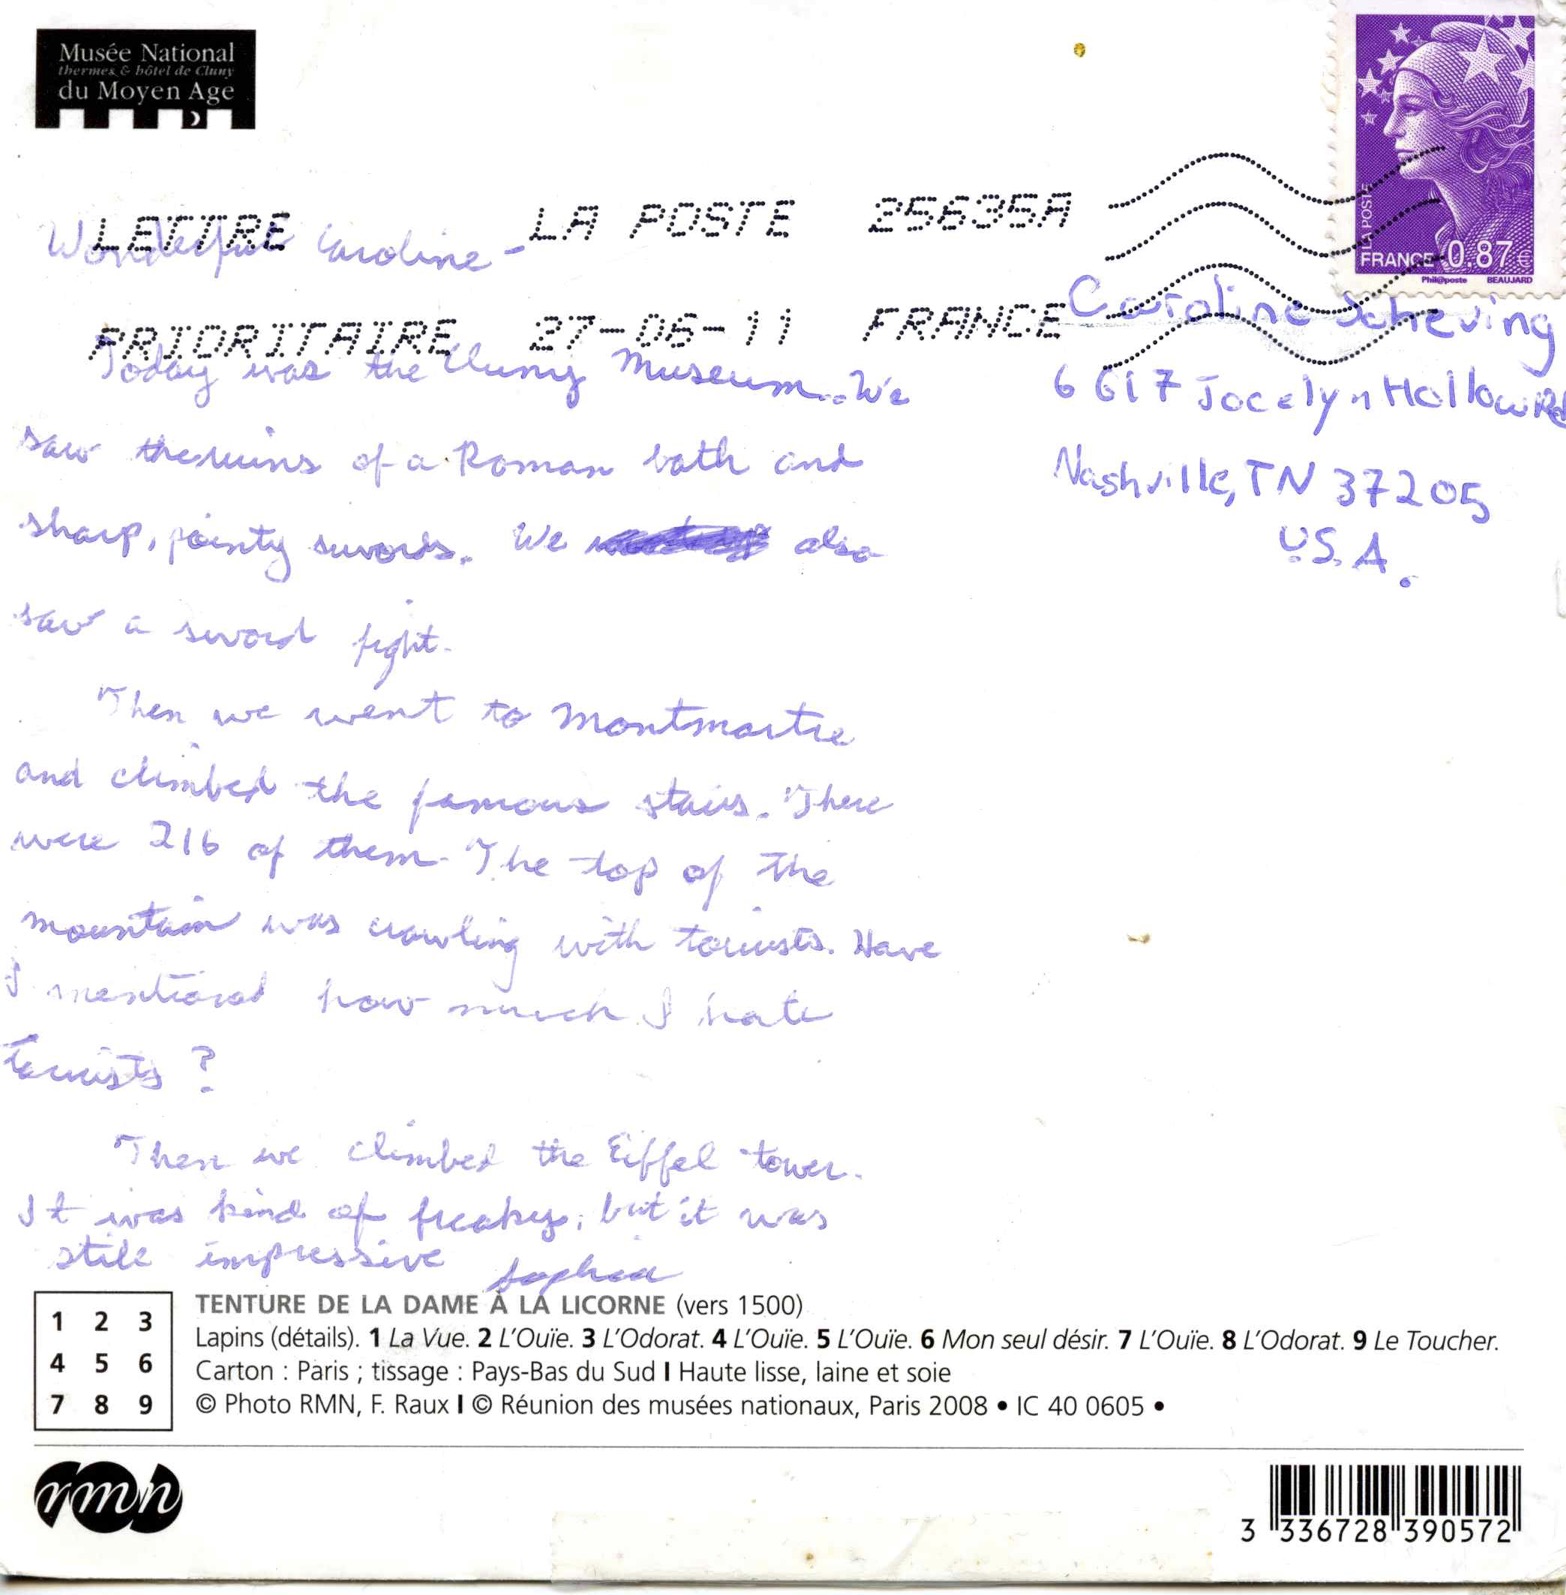 Musée National
thermes & hôtel de Cluny
du Moyen Age
LA POSTE
FRANCE 0.87€
Phil@poste BEAUJARD
LETTRE LA POSTE 25635A
PRIORITAIRE 27-06-11 FRANCE
Wonderful Caroline-
Today was the Cluny Museum. We
saw the ruins of a Roman bath and
sharp, pointy swords. We also
saw a sword fight.
Then we went to Montmartre
and climbed the famous stairs. There
were 216 of them. The top of the
mountain was crawling with tourists. Have
I mentioned how much I hate
tourists?
Then we climbed the Eiffel tower.
It was kind of freaky, but it was
still impressive Sophia
Caroline Scheving
6617 Jocelyn Hollow Rd
Nashville, TN 37205
U.S.A.
1 2 3
4 5 6
7 8 9
TENTURE DE LA DAME À LA LICORNE (vers 1500)
Lapins (détails). 1 La Vue. 2 L'Ouïe. 3 L'Odorat. 4 L'Ouïe. 5 L'Ouïe. 6 Mon seul désir. 7 L'Ouïe. 8 L'Odorat. 9 Le Toucher.
Carton : Paris ; tissage : Pays-Bas du Sud I Haute lisse, laine et soie
© Photo RMN, F. Raux I © Réunion des musées nationaux, Paris 2008 • IC 40 0605 •
rmn
3 336728 390572